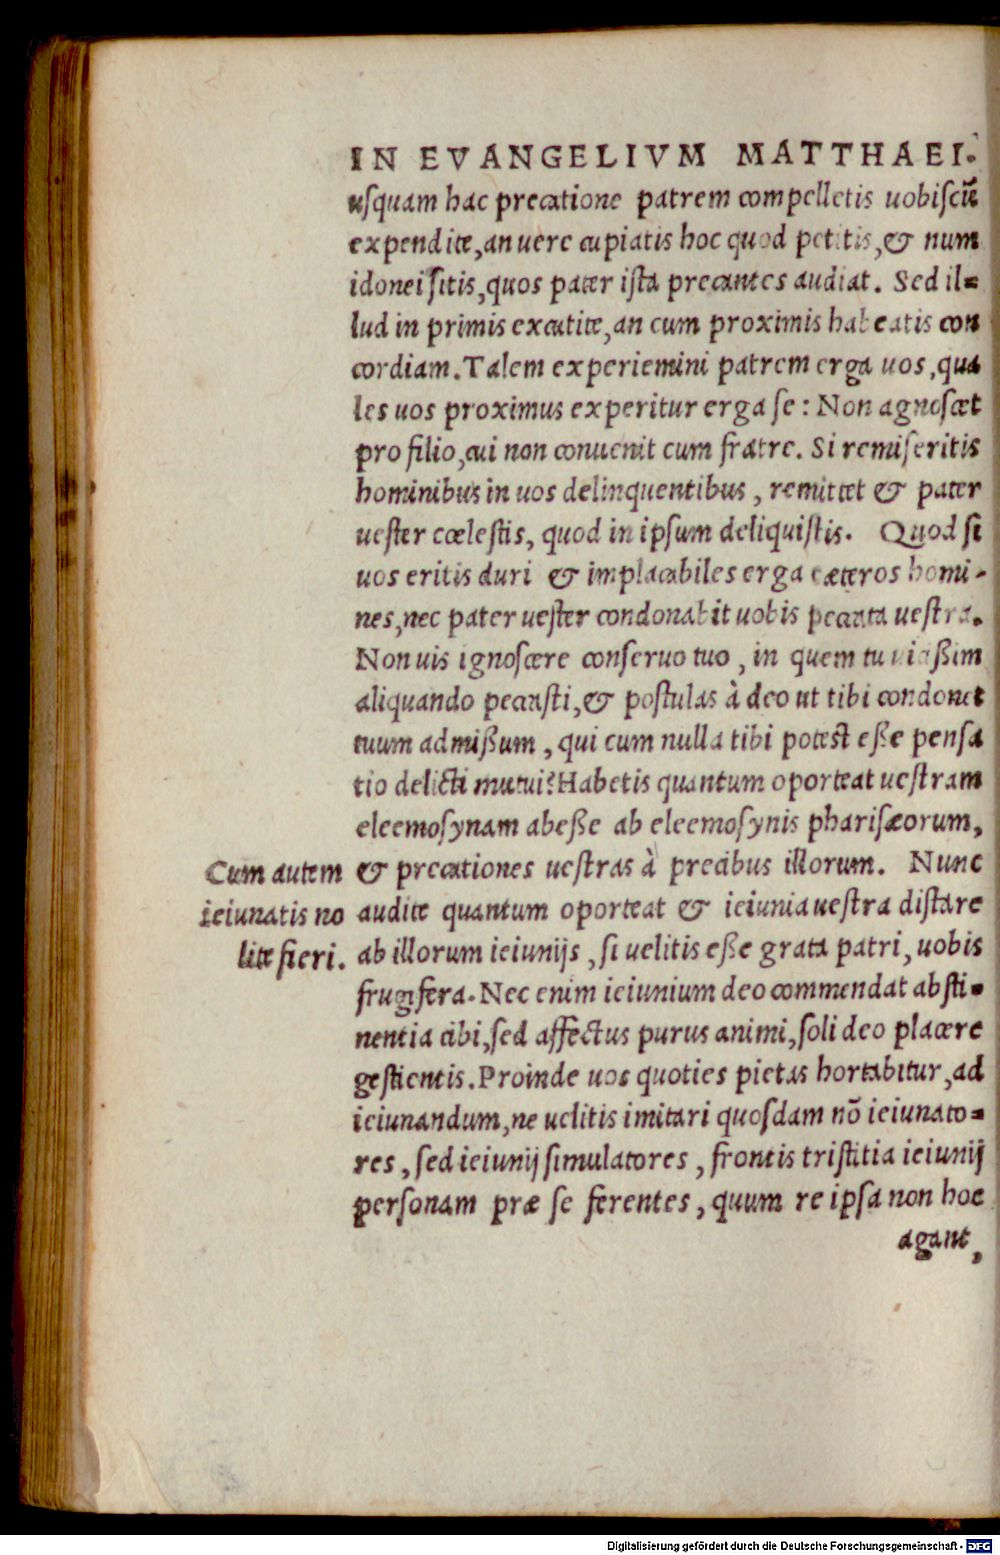 IN EVANGELIVM MATTHAEI.
usquam hac precatione patrem compelletis uobiscũ
expendite, an uere cupiatis hoc quod petitis, & num
idonei sitis, quos pater ista precantes audiat. Sed il-
lud in primis excutite, an cum proximis habeatis con
cordiam. Talem experiemini patrem erga uos, qua
les uos proximus experitur erga se: Non agnoscet
pro filio, cui non conuenit cum fratre. Si remiseritis
hominibus in uos delinquentibus, remittet & pater
uester cœlestis, quod in ipsum deliquistis. Quod si
uos eritis duri & implacabiles erga cæteros homi-
nes, nec pater uester condonabit uobis peccata uestra.
Non uis ignoscere conseruo tuo, in quem tu uicißim
aliquando peccasti, & postulas à deo ut tibi condonet
tuum admißum, qui cum nulla tibi potest eße pensa
tio delicti mutui? Habetis quantum oporteat uestram
eleemosynam abeße ab eleemosynis pharisæorum,
& precationes uestras à precibus illorum. Nunc
audite quantum oporteat & ieiunia uestra distare
ab illorum ieiunijs, si uelitis eße grata patri, uobis
frugifera. Nec enim ieiunium deo commendat absti-
nentia cibi, sed affectus purus animi, soli deo placere
gestientis. Proinde uos quoties pietas hortabitur, ad
ieiunandum, ne uelitis imitari quosdam nõ ieiunato-
res, sed ieiunij simulatores, frontis tristitia ieiunij
personam præ se ferentes, quum re ipsa non hoc
agant,
Cum autem
ieiunatis no
lite fieri.
Digitalisierung gefördert durch die Deutsche Forschungsgemeinschaft - DFG